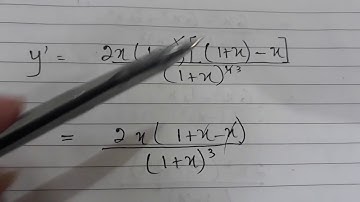 y' = 2x(1 [(1+x)-x] / (1+x)^4 3
= 2x(1+x-x) / (1+x)^3